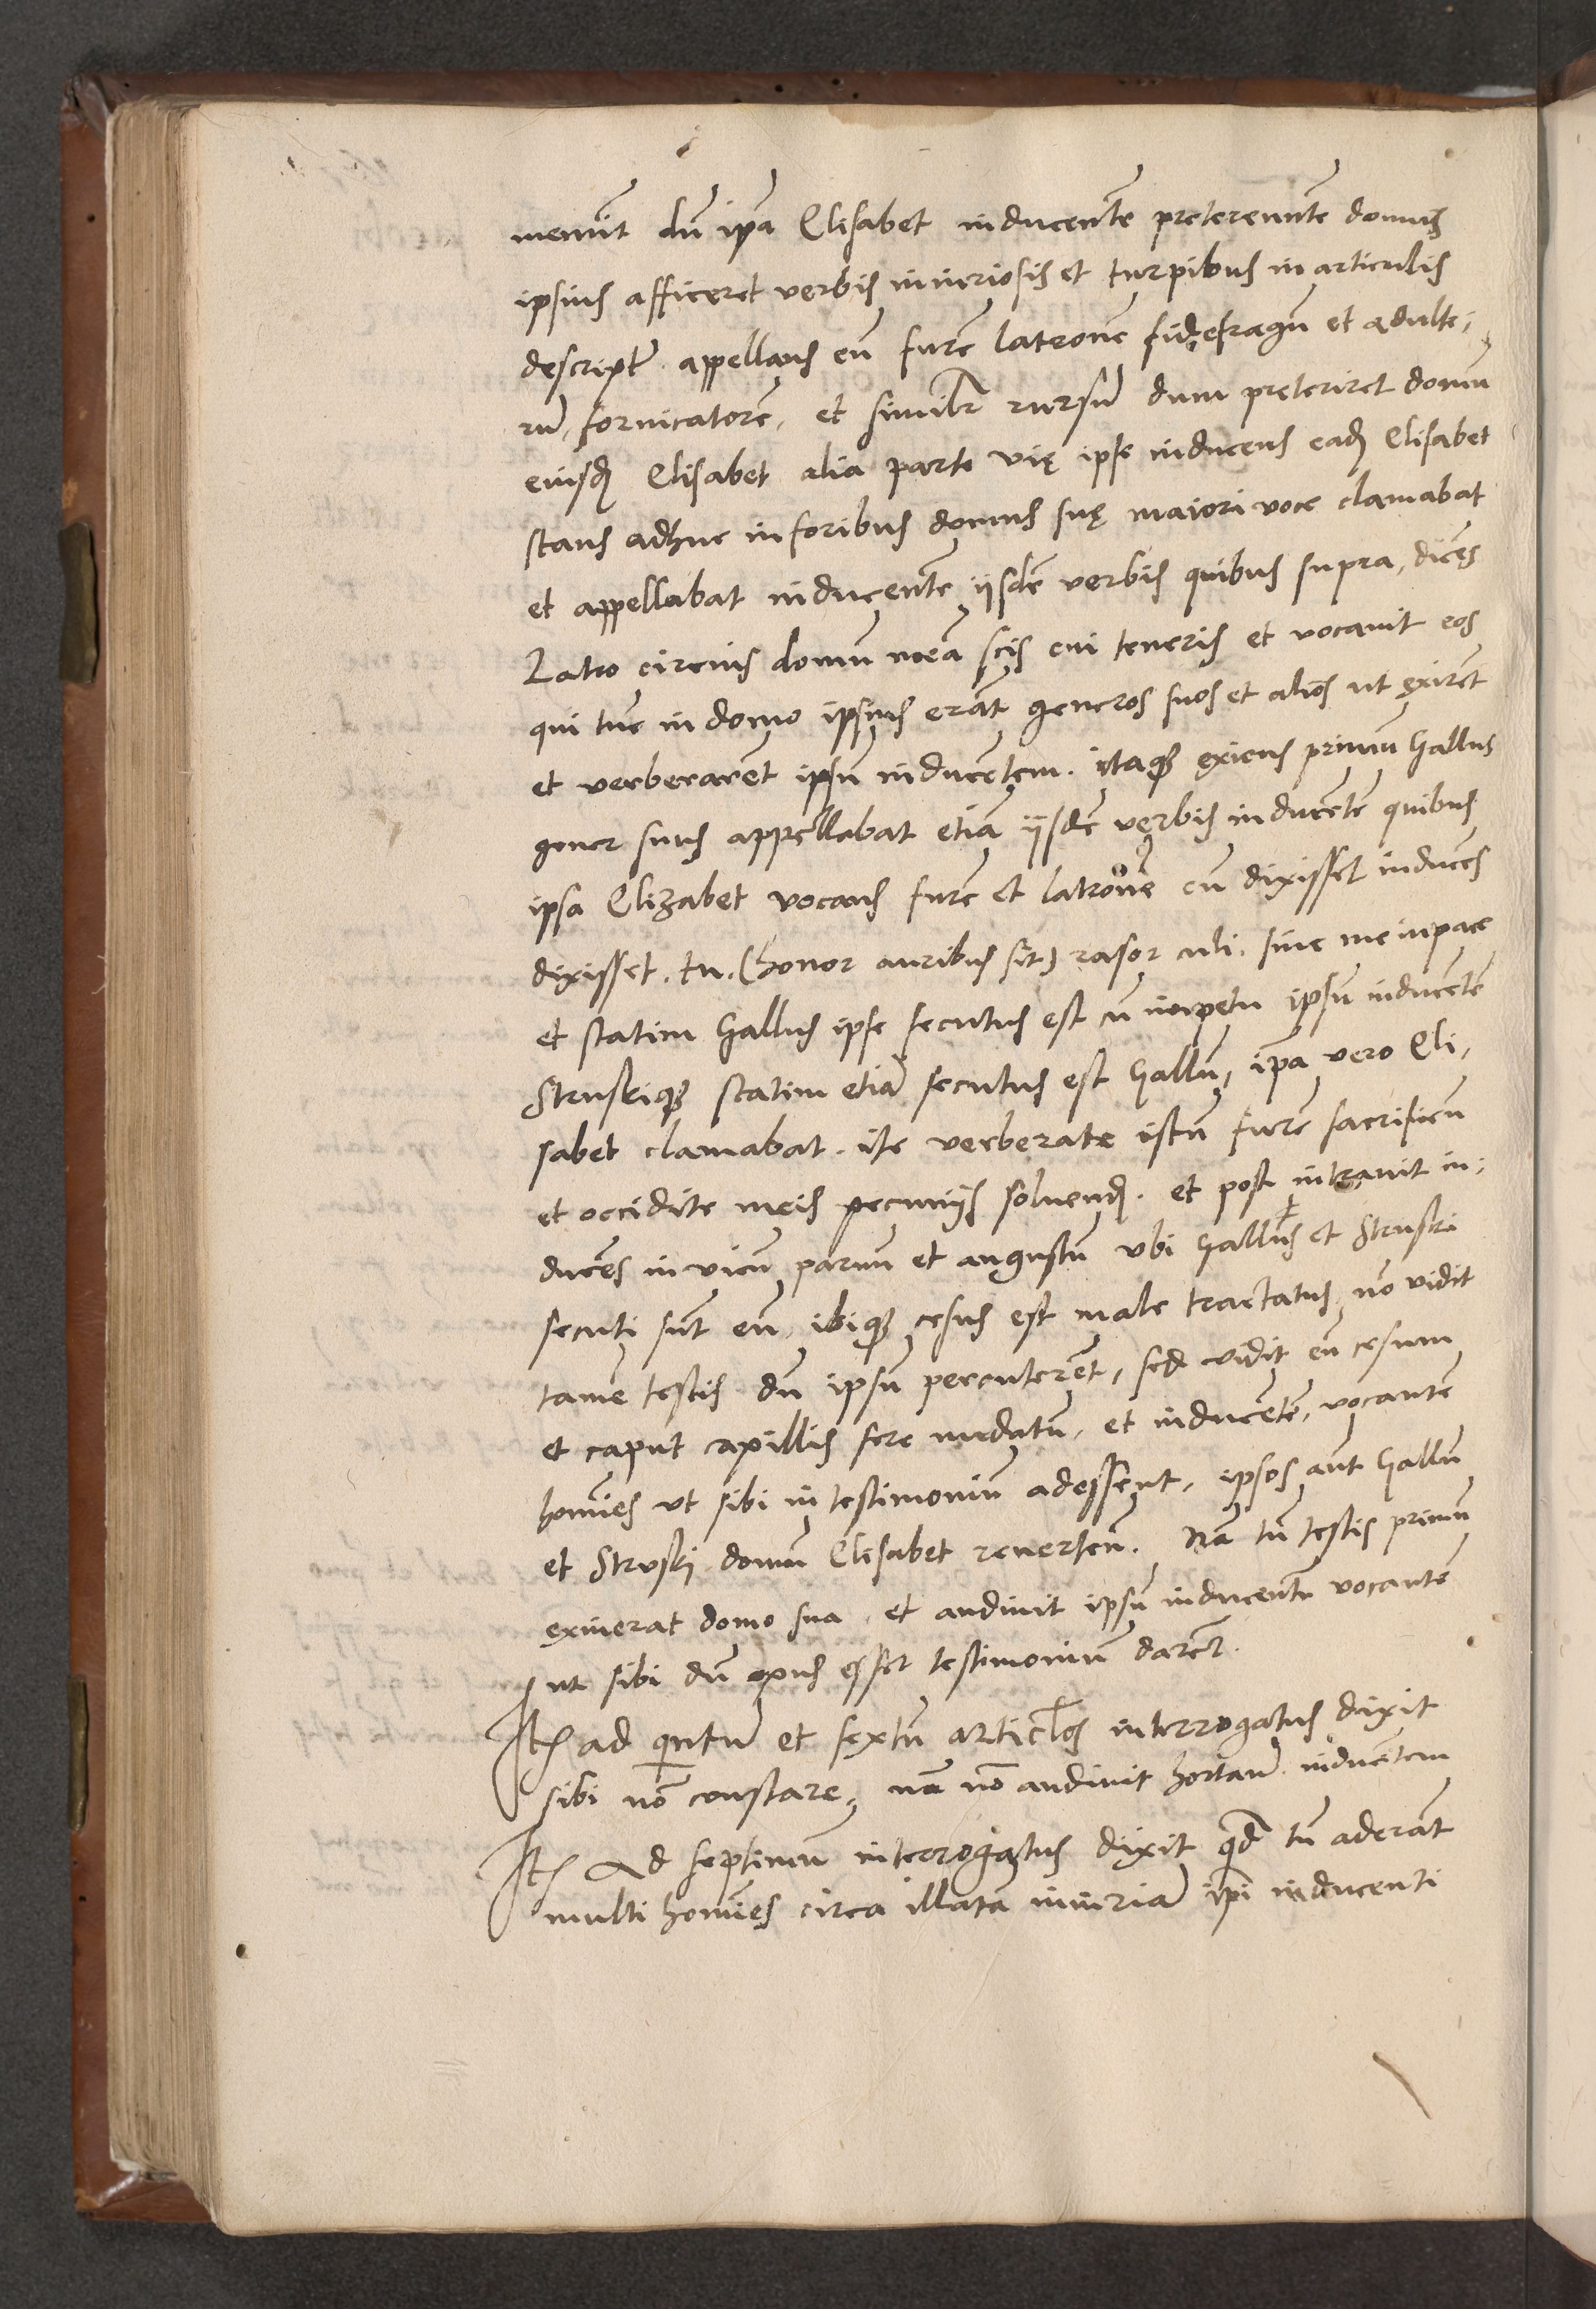 menut dū ipā Elisabet inducentē pretereuntē domus
ipsius afficeret verbis iniuriosis et turpibus in articulis
descriptꝭ appellans eū furē latronē fidefragū et adulte,
rū, fornicatorē, et similr̄ rursū dum preteriret domū
eiusdꝫ Elisabet alia parte vię ipse inducens eadꝫ Elisabet
stans adhuc in foribus domus suę maiori voce clamabat
et appellabat inducentē iisdē verbis quibus supra, dicēs
Latro circuis domū meā scis cui teneris et vocauit eos
qui tūc in domo ipsius erāt generos suos et alios ut exirēt
et verberarēt ipsū inducētem. itaqꝫ exiens primū Gallus
gener suus appellabat etiā iisdē verbis inducētē quibus
ipsa Elizabet vocans furē et latronē cū dixisset inducēs
dixisset. tu. (honor auribus sit) rasor culi. sine me in pace
et statim Gallus ipse secutus est cū impetu ipsū inducētē
Struskiqꝫ statim etiā secutus est Gallū, ipā vero Eli,
sabet clamabat. ite verberate istū furē sacrificū
et occidite meis pecuniis soluendꝫ. et post intrauit in,
ducēs in vicū paruū et angustū vbi Gallus et Struski
secuti sūt eū, ibiqꝫ cesus est male tractatus, nō vidit
tamē testis dū ipsū percuterēt, sed vidit eū cesum
et caput capillis fere nudatū, et inducētē, vocantē
homīes vt sibi in testimoniū adessent, ipsos aūt Gallū
et Struski domū Elisabet reuersū. Nā tū testis primū
exiuerat domo sua, et audiuit ipsū inducentē vocantē
ut sibi dū opus esset testimoniū darēt.
Itꝫ ad quintū et sextū articl̄os interrogatus dixit
sibi nō constare, nā nō audiuit hortarī inducētem
Itꝫ Ad septimū interrogatus dixit qd̄ tū aderāt
multi homīes circa illatā iniuriā ipī inducenti